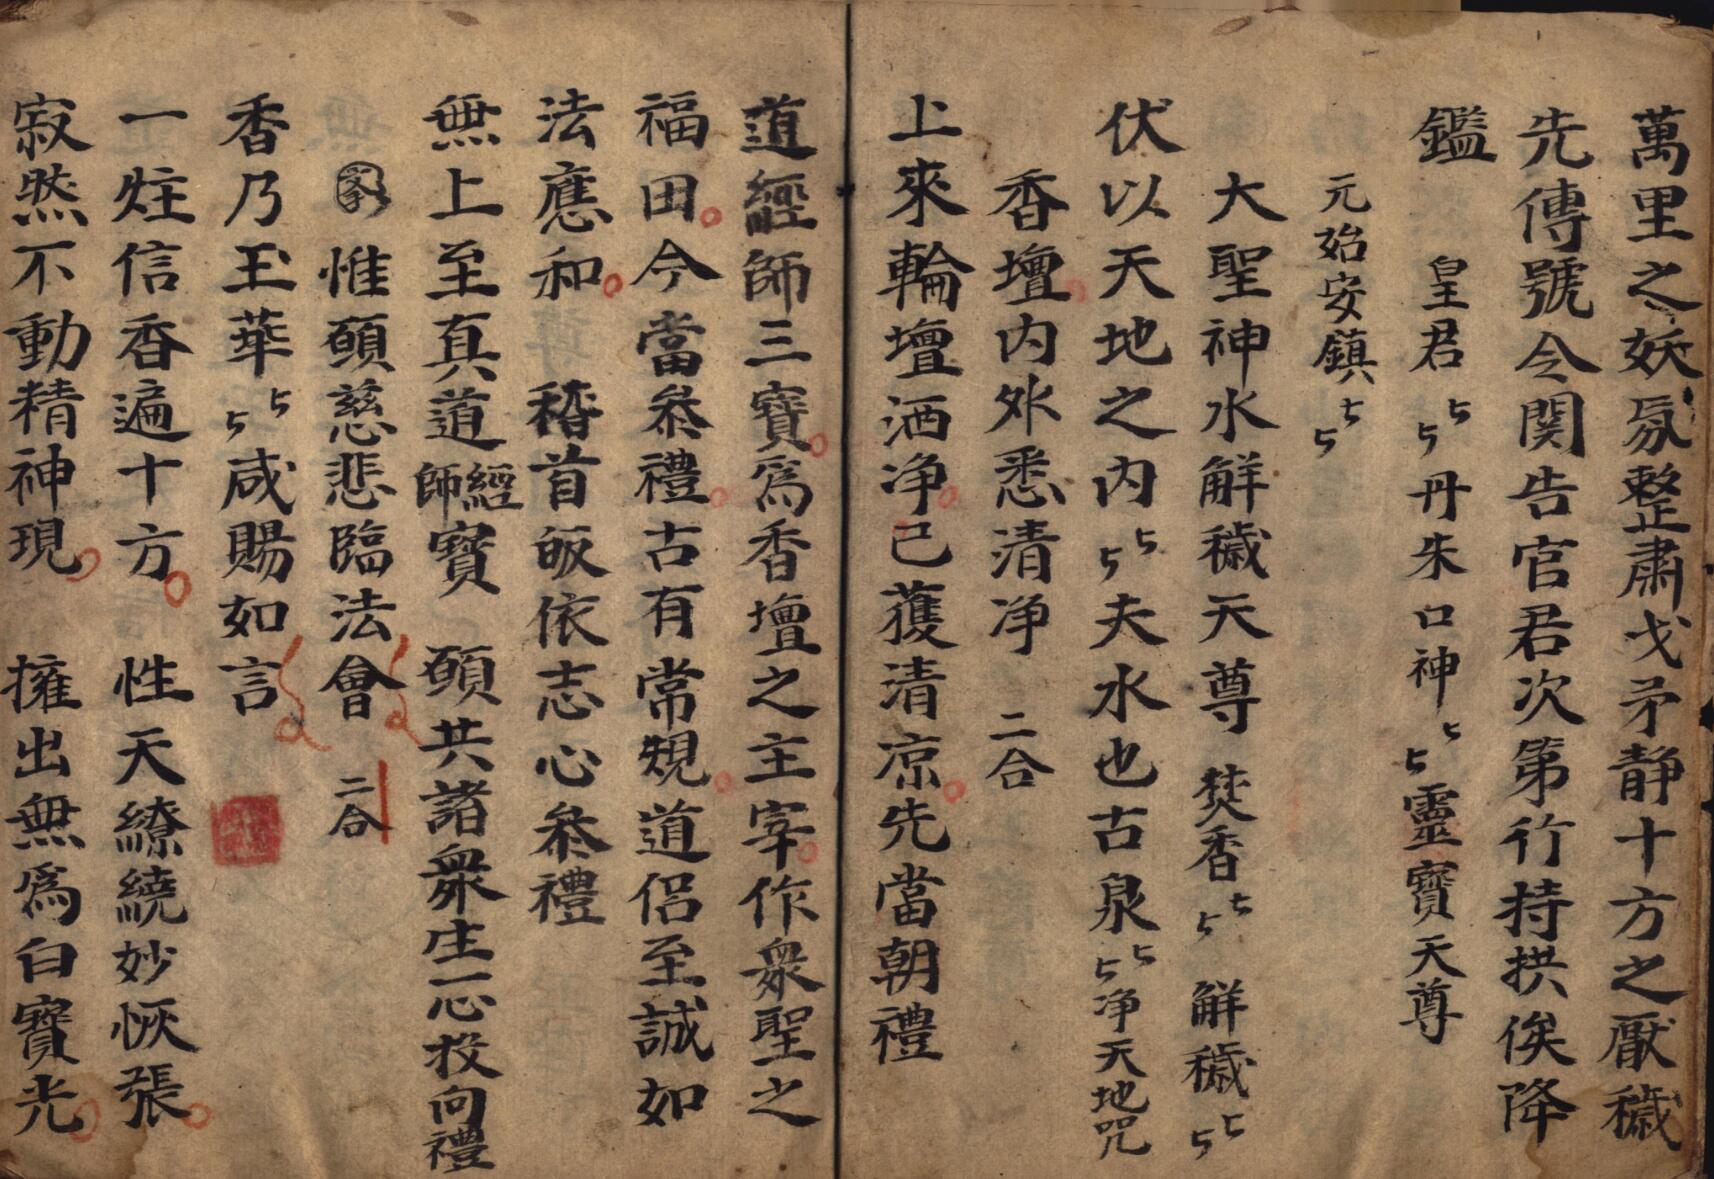 萬里之妖氛整肅戈矛静十方之厭穢
先傳號令関告官君次第行持拱俟降
鑑 皇君 丹朱口神 靈寶天尊
元始安鎮
大聖神水解穢天尊 焚香 解穢
伏以天地之内 夫水也古泉 净天地咒
香壇内外悉清净 二合
上來輪壇洒净已獲清凉先當朝禮
道經師三寶爲香壇之主宰作衆聖之
福田今當叅禮古有常規道侣至誠如
法應和 稽首皈依志心叅禮
無上至真道經師寶 願共諸衆生一心投向禮
惟願慈悲臨法會 二合
香乃玉華 咸賜如言
一炷信香遍十方 性天繚繞妙恢張
寂然不動精神現 擁出無爲白寶光